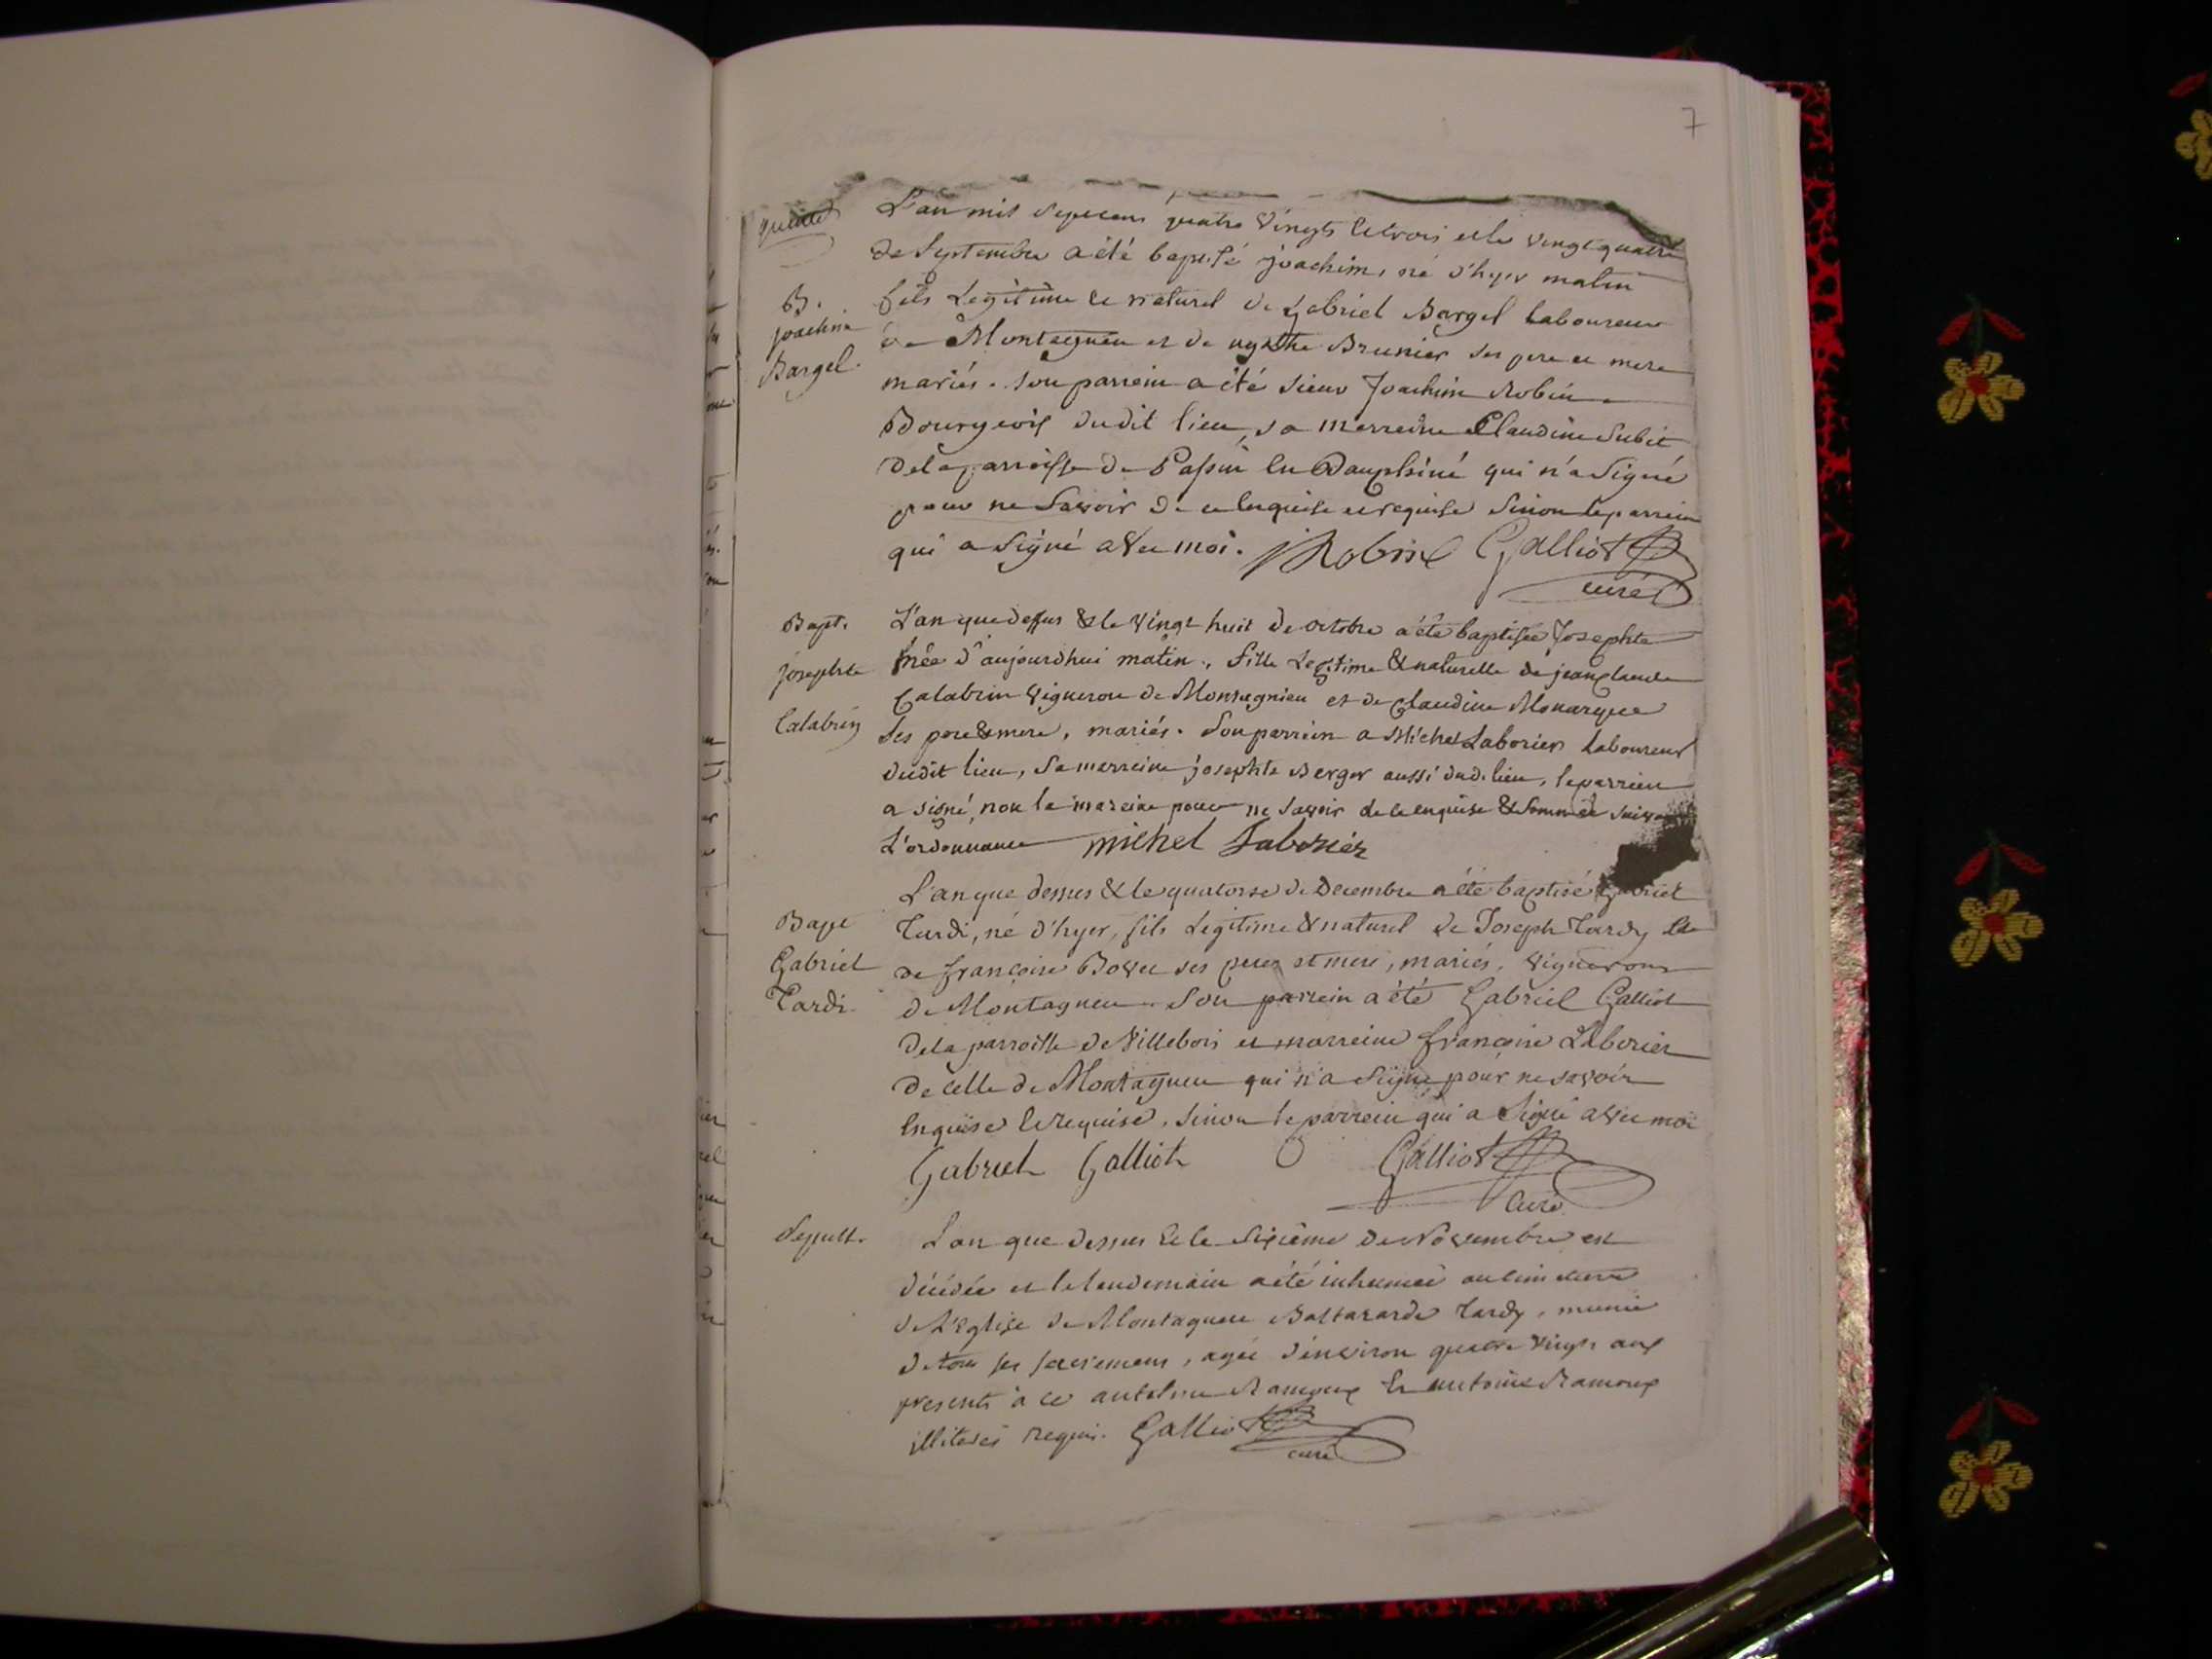 7
L'an mil sept cens quatre vingts et trois et le vingt quatre
de Septembre a été baptisé Joachim, né d'hyer matin
B. fils Legitime et naturel de Gabriel Bargel Laboureur
Joachim
de Montagneu et de Brunier ses pere et mere
Bargel.
mariés. Son parrein a été sieur Joachim Robin
Bourgeois dudit lieu, sa marreine Claudine Subit
de la parroisse de Passin en Dauphiné qui n'a Signé
pour ne Savoir de ce enquise et requise sinon le parrein
qui a signé avec moi. JRobin Galliot
curé
Bapt. L'an que dessus & le vingt huit de octobre a été baptisée Josephte
josephte née d'aujourdhui matin, fille Legitime & naturelle de jean claude
Calabrin vigneron de Montagnieu et de Claudine Monarque
Calabrin
ses pere & mere, mariés. Son parrein a Michel Laborier Laboureur
dudit lieu, sa marreine josephte Berger aussi dud. lieu, le parrein
a signé, non la mareine pour ne savoir de ce enquise & sommée suivant
L'ordonnance michel Laborier
L'an que dessus & le quatorse de Decembre a été baptisé Gabriel
Bapt Tardi, né d'hyer, fils Legitime & naturel de Joseph Tardy et
Gabriel de françoise Bovet ses pere et mere, mariés, vignerons
Tardi. de Montagneu. Son parrein a été Gabriel Galliot
de la parroisse de Villebois et marreine françoise Laborier
de celle de Montagneu qui n'a signé pour ne savoir
enquise et requise, sinon le parrein qui a signé avec moi
Gabriel Galliot Galliot
curé
Sepult. L'an que dessus et le sixième de Novembre est
décédée et le lendemain a été inhumée au cimetiere
de L'Eglise de Montagneu Baltazarde Tardy, munie
de tous ses sacremens, agée d'environ quatre vingts ans
presents à ce antelme Ramoux et antoine Ramoux
illiterés requis. Galliot
curé